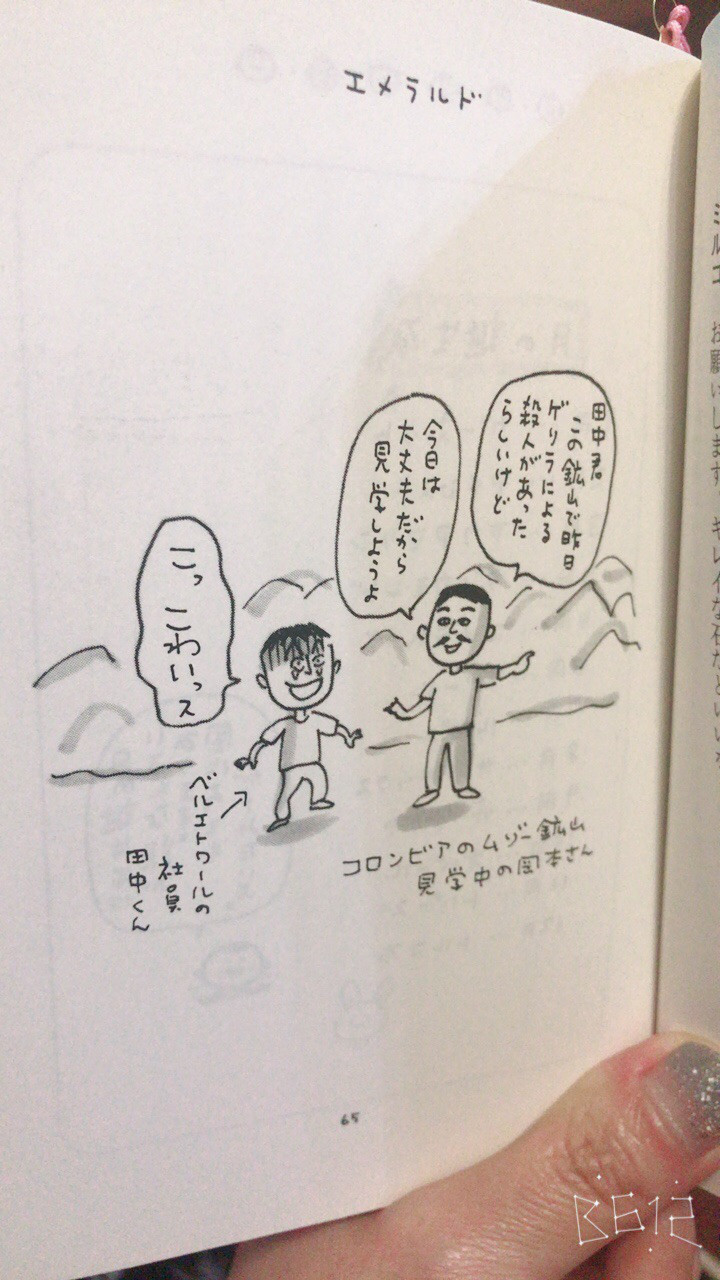 エメラルド
田中君
この鉱山で昨日
ゲリラによる
殺人があった
らしいけど
今日は
大丈夫だから
見学しようよ
こっ
こわいっス
ベルエトワールの
社員
田中くん
コロンビアのムゾー鉱山
見学中の岡本さん
65
ミルエ
お願いします
キレイな石だといい
B612